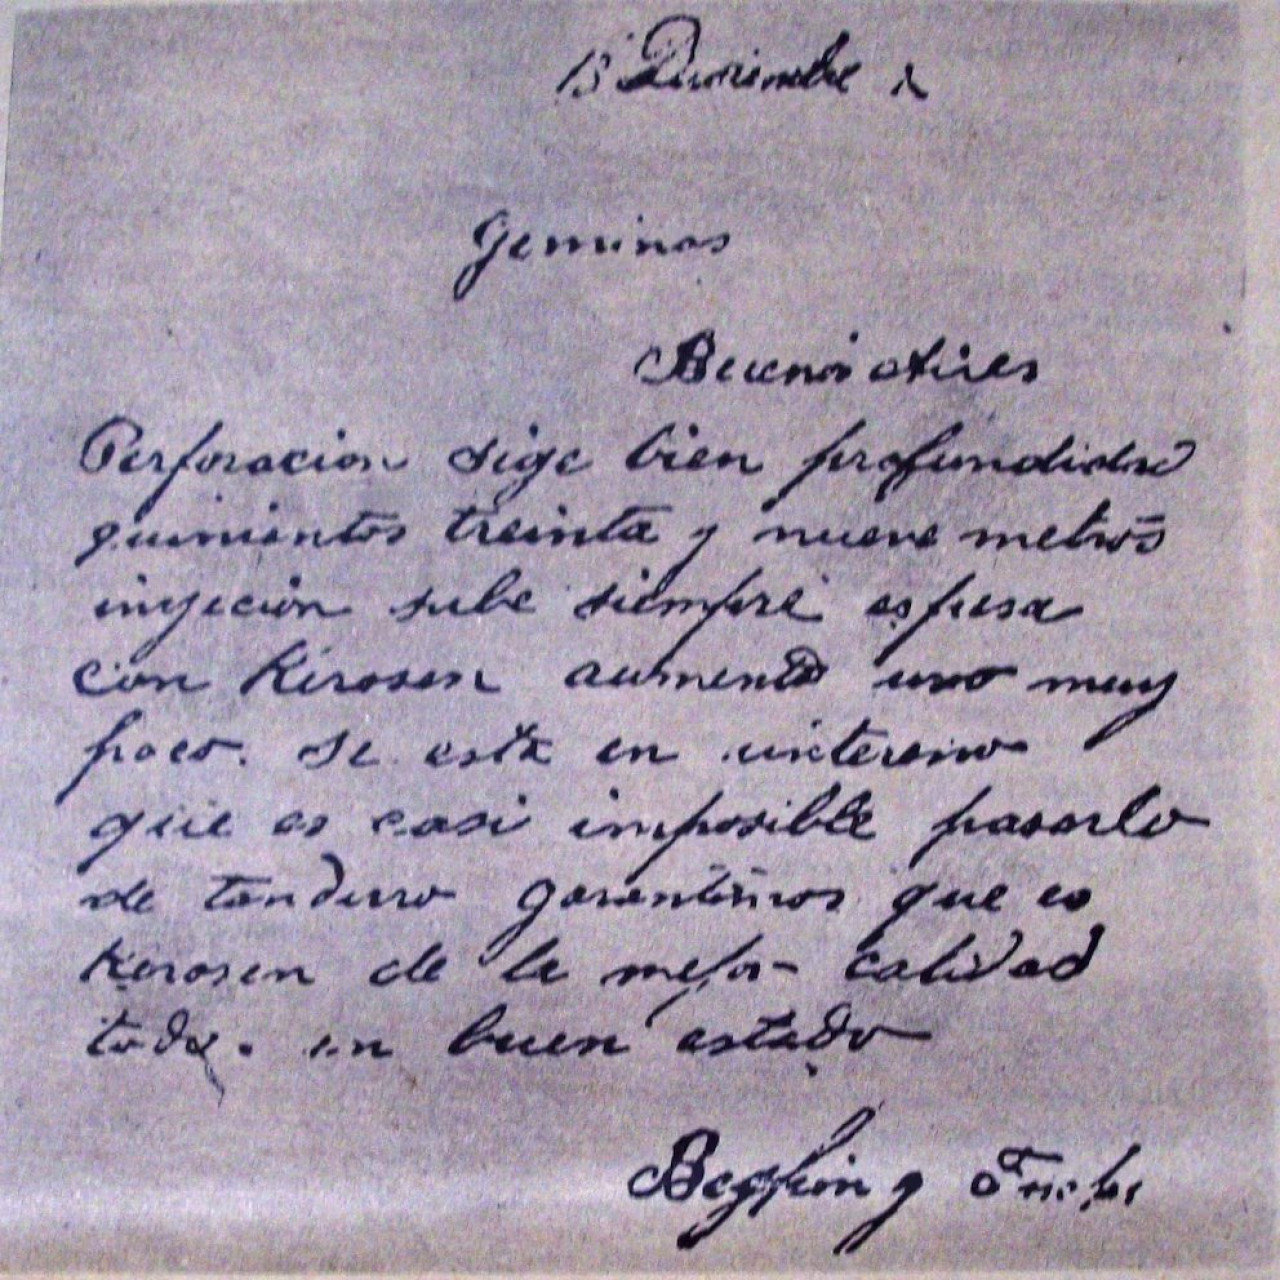 13 Diciembre
Geminas
Buenos Aires
Perforacion sige bien profundidad
quinientos treinta y nueve metros
inyecion sube siempre espesa
con Kirosen aumento uno muy
poco. se esta en unterono
que es casi imposible pasarlo
de tan durro garantimos que es
Kerosen de la mejor calidad
todo. en buen estado
Beghin y Fuchs